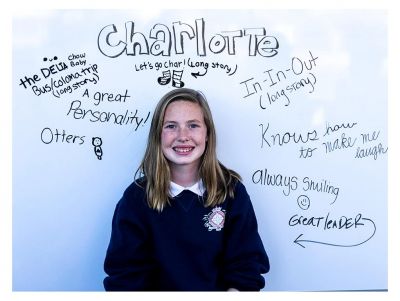 CharloTTe
Let's go char! (Long story)
chow
Baby
the DELIA
Bus/coloma trip
(long story)
A great
Personality!
Otters
In-In-Out
(long story)
Knows how
to make me
laugh
always smiling
Great leader